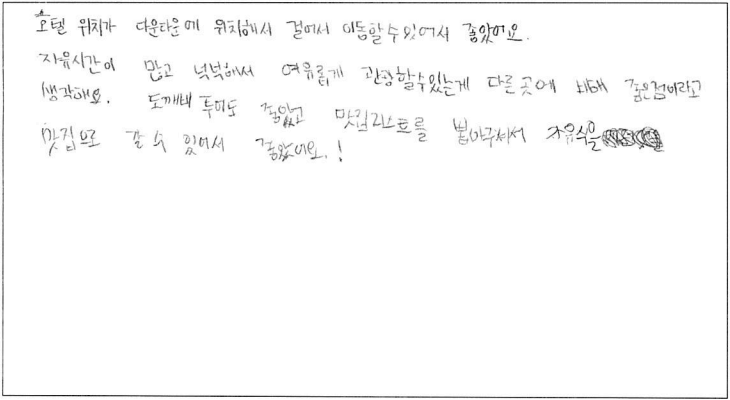 호텔 위치가 다운타운에 위치해서 걸어서 이동할수있어서 좋았어요.
자유시간이 많고 넉넉해서 여유롭게 관광할수있는게 다른곳에 비해 좋은점이라고
생각해요. 도깨비투어도 좋았고 맛집리스트를 뽑아주셔서 자유식을
맛집으로 갈 수 있어서 좋았어요.!